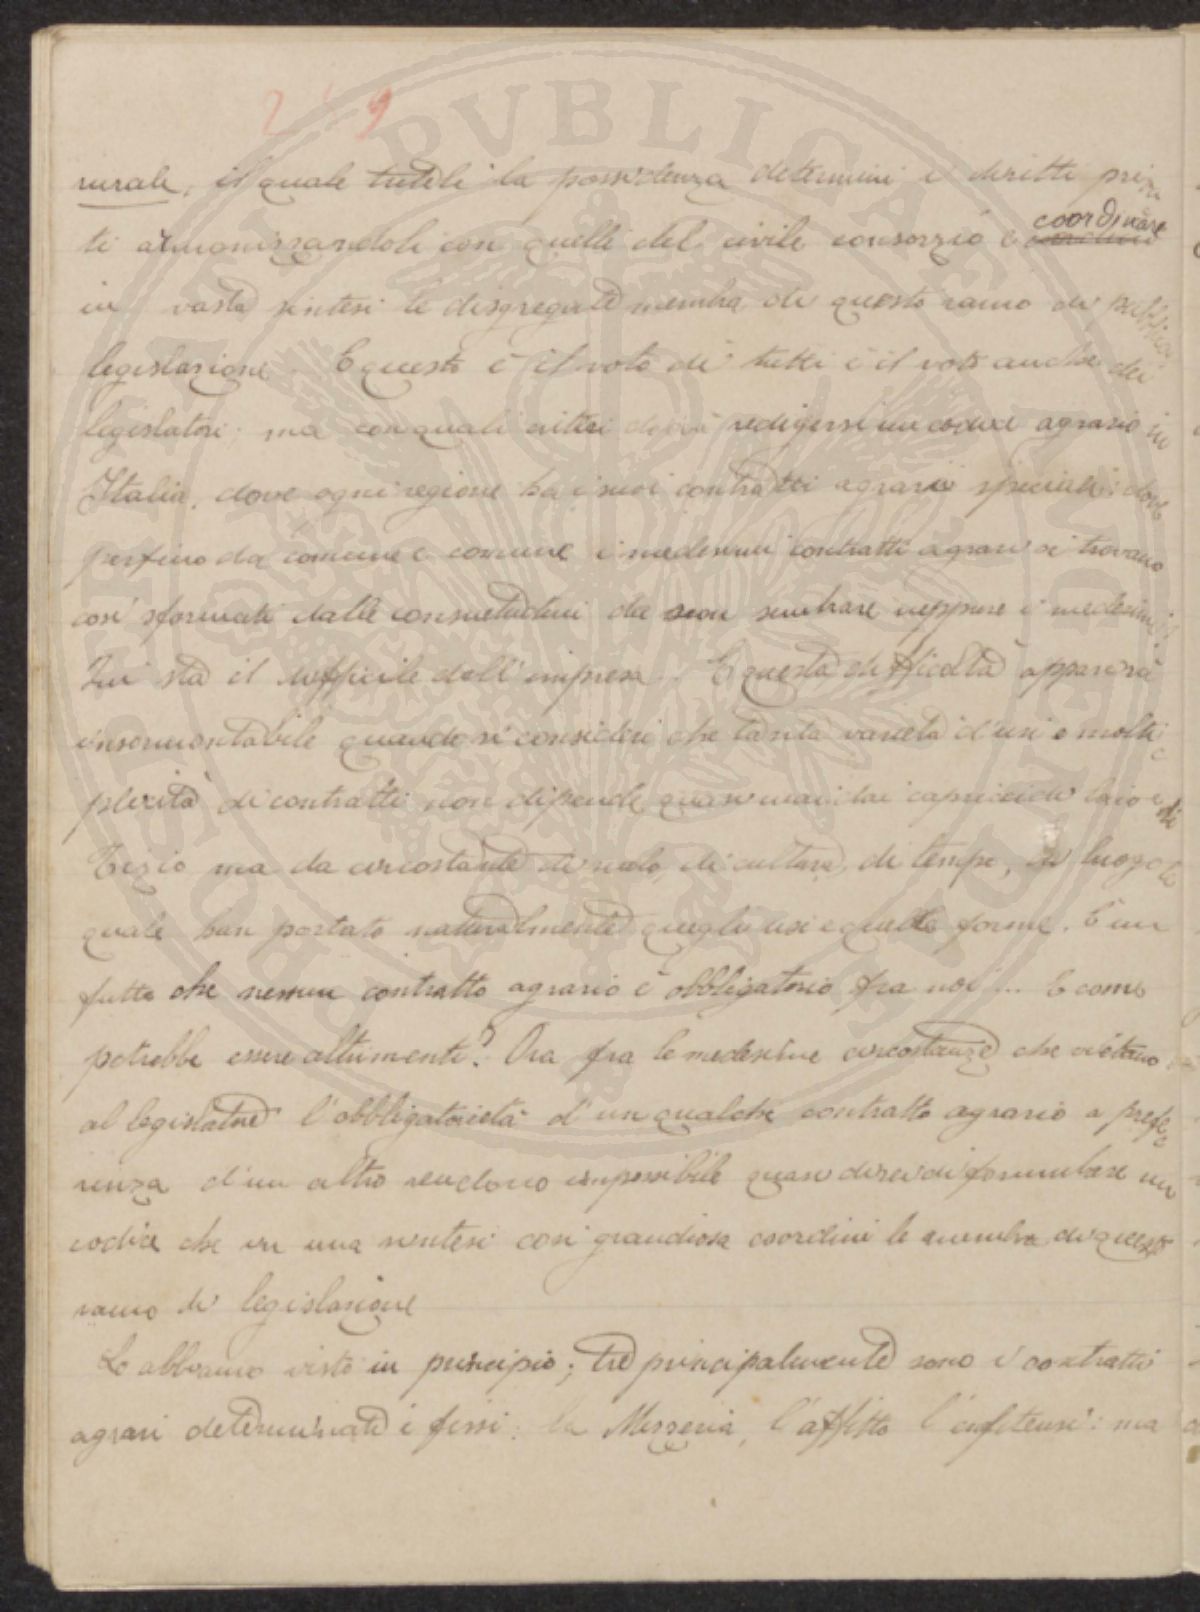 249
rurale, il quale tuteli la possidenza determini i diritti priva
ti armonizzandoli con quelli del civile consorzio e coordinare
in vasta sintesi le disgregate membra di questo ramo di pubblica
legislazione. E questo è il voto di tutti è il voto anche dei
legislatori; ma con quali criteri dovrà redigersi un codice agrario in
Italia, dove ogni regione ha i suoi contratti agrari speciali: dove
perfino da comune e comune i medesimi contratti agrari si trovano
così sformati dalle consuetudini da non sembrare neppure i medesimi
Qui sta il difficile dell'impresa. E questa difficoltà apparirà
insormontabile quando si consideri che tanta varietà d'usi e molti
plicità di contratti non dipende quasi mai dai capricci di Caio e di
Tizio ma da circostanze di suolo, di cultura, di tempo, di luogo le
quale han portato naturalmente quegli usi e quelle forme. È un
fatto che nessun contratto agrario è obbligatorio fra noi ... E come
potrebbe essere altrimenti? Ora fra le medesime circostanze che vietano
al legislatore l'obbligatorietà d'un qualche contratto agrario a prefe
renza d'un altro rendono impossibile quasi direi di formulare un
codice che in una sintesi così grandiosa coordini le membra di questo
ramo di legislazione
Lo abbiamo visto in principio; tre principalmente sono i contratti
agrari determinati e fissi: la Mezzeria, l'affitto l'enfiteusi: ma
PUBLICAE